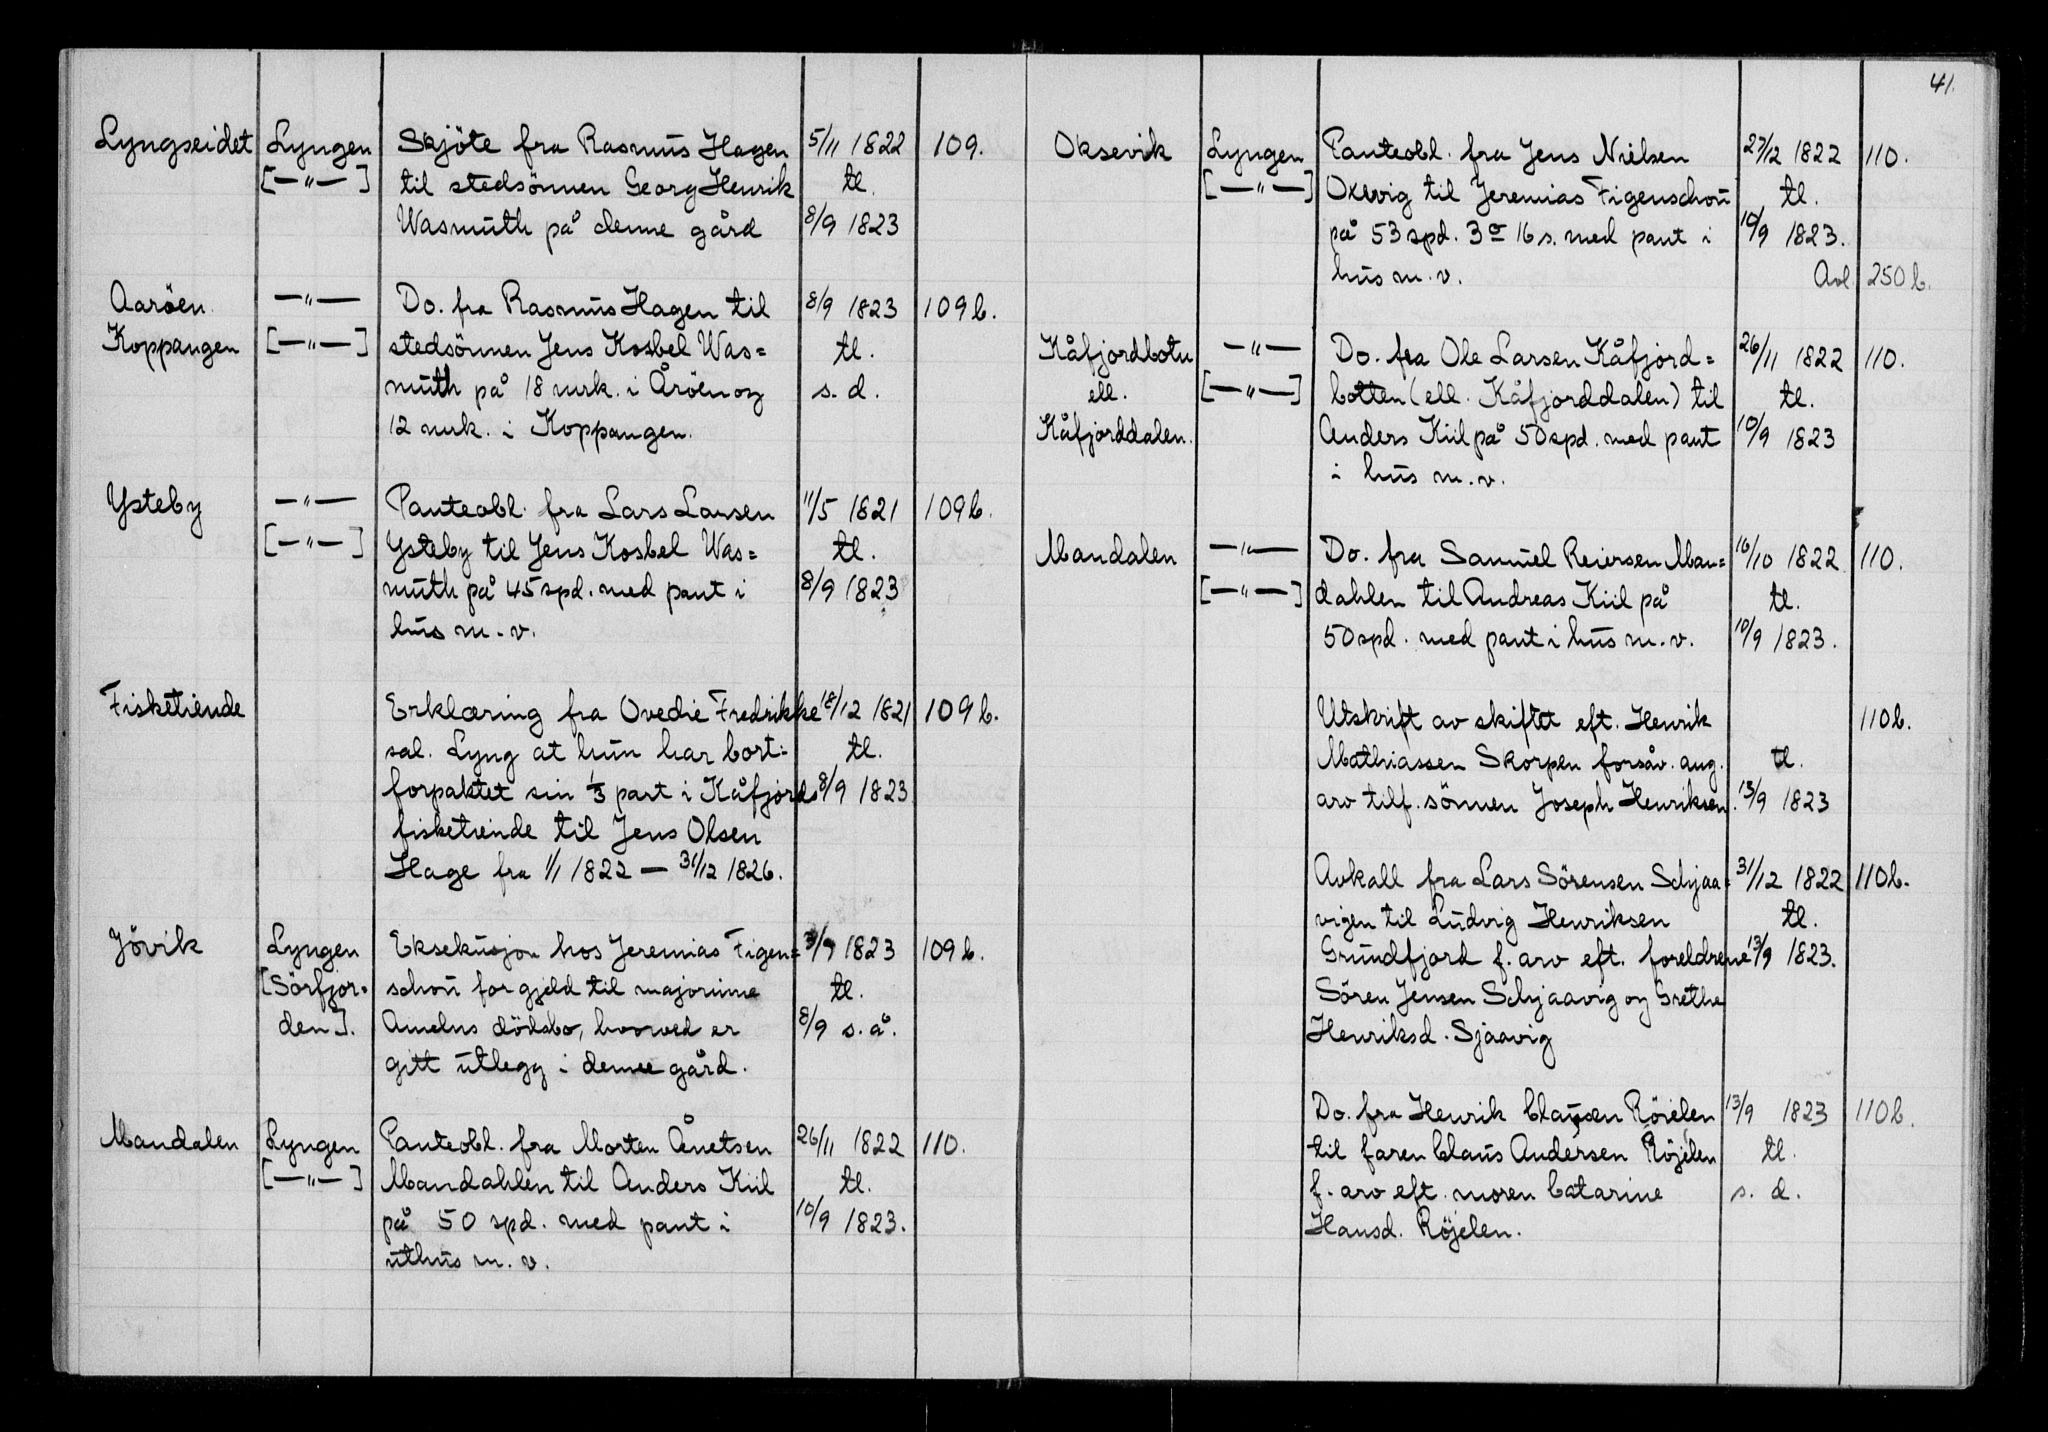 41.
Lyngseidet Lyngen Skjöte fra Rasmus Hagen 5/11 1822 109.
[—"—] til stedsönnen Georg Henrik tl.
Wasmuth på denne gård 8/9 1823
Aaröen —"— Do. fra Rasmus Hagen til 8/9 1823 109b.
Koppangen [—"—] stedsönnen Jens Kosbel Was= tl.
muth på 18 mrk. i Åröen og s. d.
12 mrk. i Koppangen.
Ysteby —"— Panteobl. fra Lars Larsen 11/5 1821 109b.
[—"—] Ysteby til Jens Kosbel Was= tl.
muth på 45 spd. med pant i 8/9 1823
hus m. v.
Fisketiende Erklæring fra Ovedie Fredrikke 18/12 1821 109b.
sal. Lyng at hun har bort= tl.
forpaktet sin 1/3 part i Kåfjords 8/9 1823
fisketiende til Jens Olsen
Hage fra 1/1 1822 — 31/12 1826.
Jövik Lyngen Eksekusjon hos Jeremias Figen= 1823 109b.
[Sörfjor= schou for gjeld til majorinne tl.
den]. Amelns dödsbo, hvorved er 8/9 s. å.
gitt utlegg i denne gård.
Mandalen Lyngen Panteobl. fra Morten Ånetsen 26/11 1822 110.
[—"—] Mandahlen til Anders Kiil tl.
på 50 spd. med pant i 10/9 1823.
uthus m. v.
Oksevik Lyngen Panteobl. fra Jens Nielsen 27/12 1822 110.
[—"—] Oxevig til Jeremias Figenschou tl.
på 53 spd. 3 o 16 s. med pant i 10/9 1823.
hus m. v. Avl. 250b.
Kåfjordbotn —"— Do. fra Ole Larsen Kåfjord= 26/11 1822 110.
ell. [—"—] botten (ell. Kåfjorddalen) til tl.
Kåfjorddalen. Anders Kiil på 50 spd. med pant 10/9 1823
i hus m. v.
Mandalen —"— Do. fra Samuel Reiersen Man= 16/10 1822 110.
[—"—] dahlen til Andreas Kiil på tl.
50 spd. med pant i hus m. v. 10/9 1823.
Utskrift av skiftet eft. Henrik 110b.
Mathiassen Skorpen forsåv. ang. tl.
arv tilf. sönnen Joseph Henriksen. 13/9 1823
Avkall fra Lars Sörensen Schjaa= 31/12 1822 110b.
vigen til Ludvig Henriksen tl.
Grundfjord f. arv eft. foreldrene 13/9 1823.
Sören Jensen Schjaavig og Grethe
Henriksd. Sjaavig
Do. fra Henrik Clausen Röielen 13/9 1823 110b.
til faren Claus Andersen Röjelen tl.
f. arv eft. moren Catarine s. d.
Hansd. Röjelen.